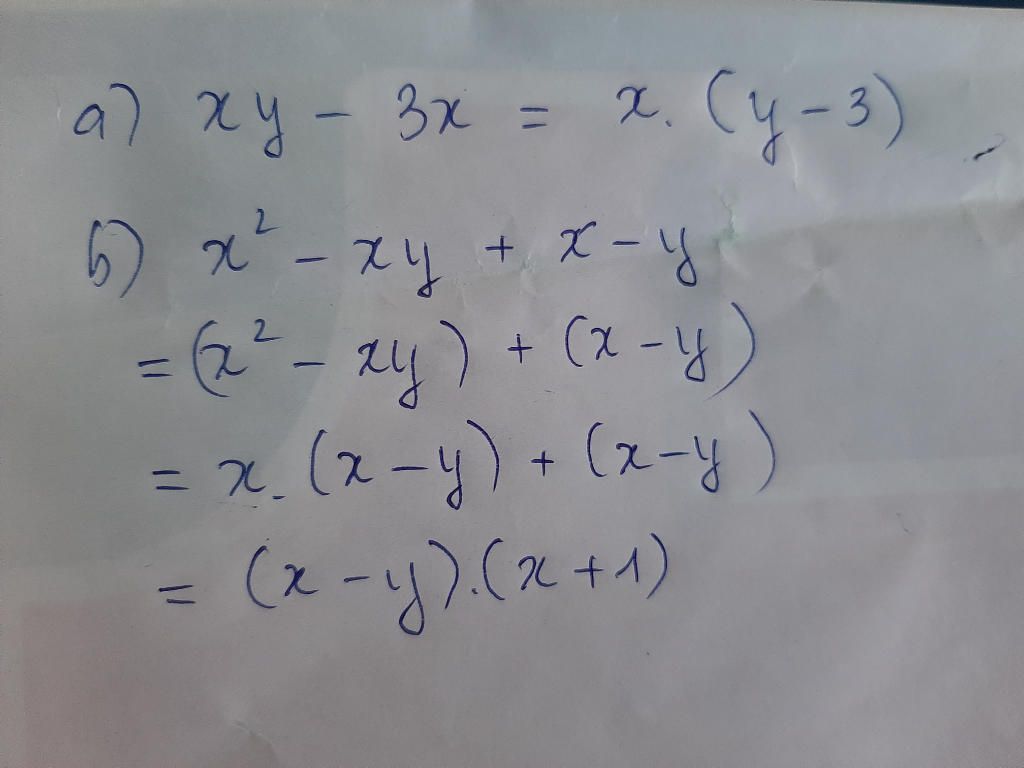 a) xy - 3x = x. (y - 3)
б) x² - xy + x - y
= (x² - xy) + (x - y)
= x. (x - y) + (x - y)
= (x - y).(x + 1)